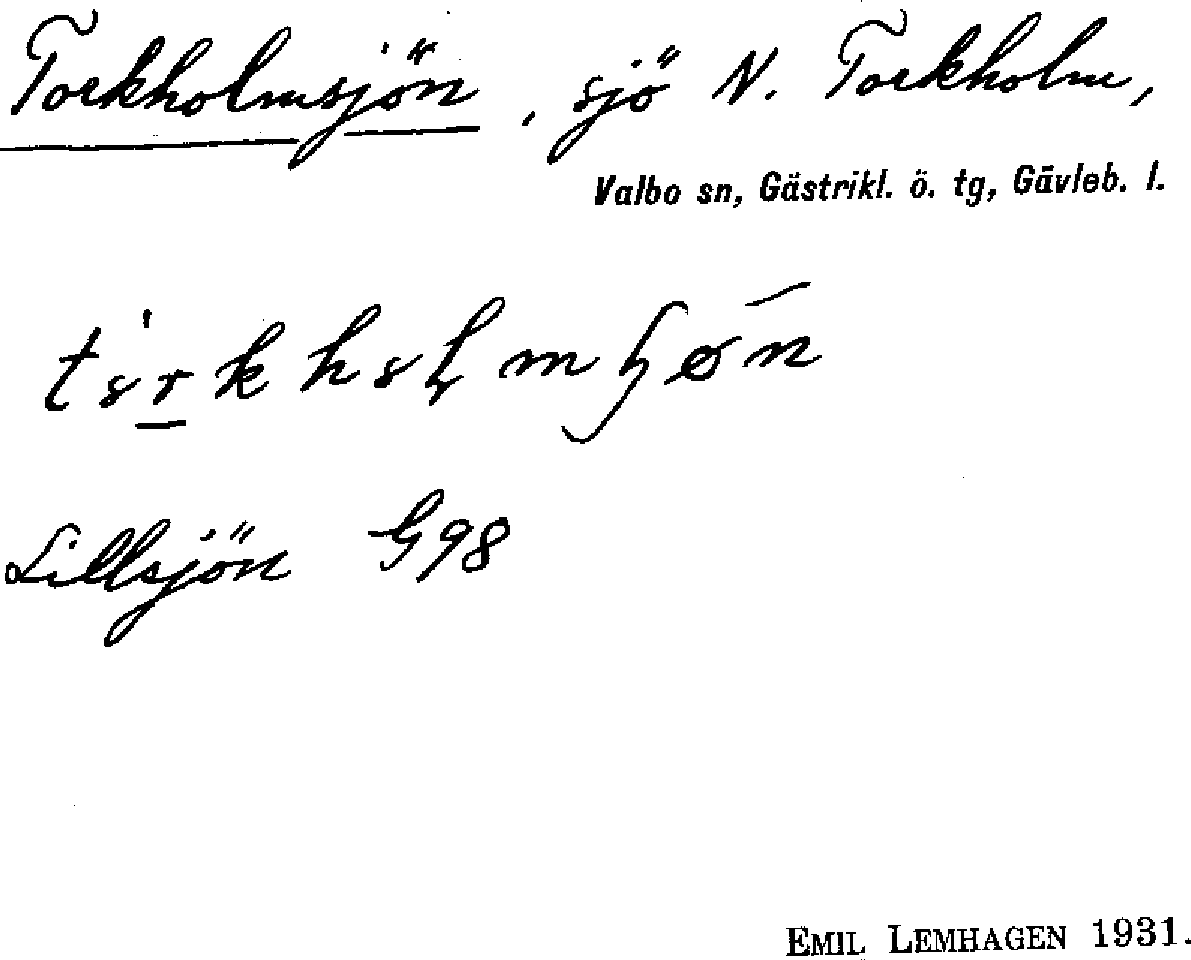 Torkholmsjön, sjö N. Torkholm,
Valbo sn, Gästrikl. ö. tg, Gävleb. l.
Lillsjön G98
EMIL LEMHAGEN 1931.